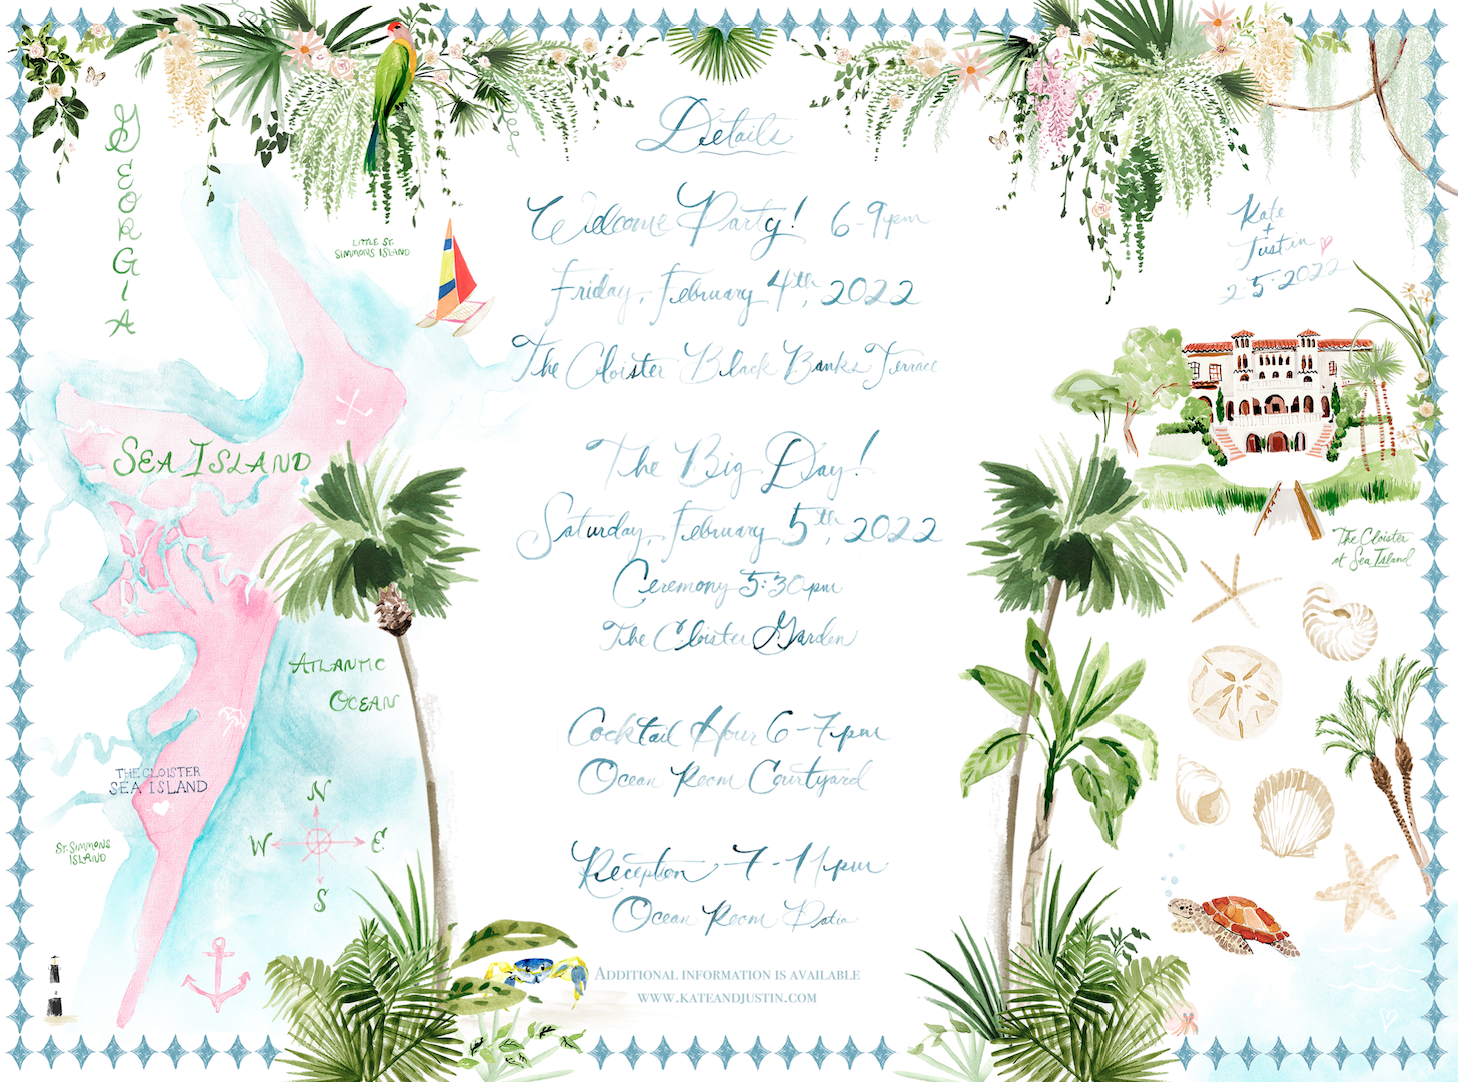 Details
Welcome Party! 6-9pm
Friday, February 4th, 2022
The Cloister Black Banks Terrace
The Big Day!
Saturday, February 5th, 2022
Ceremony 5:30pm
The Cloister Garden
Cocktail Hour 6-7pm
Ocean Room Courtyard
Reception 7-11pm
Ocean Room Patio
Additional information is available
www.kateandjustin.com
Georgia
Little St.
Simmons Island
Sea Island
Atlantic
Ocean
The Cloister
Sea Island
St. Simmons
Island
N
W E
S
Kate
+
Justin
2·5·2022
The Cloister
at Sea Island